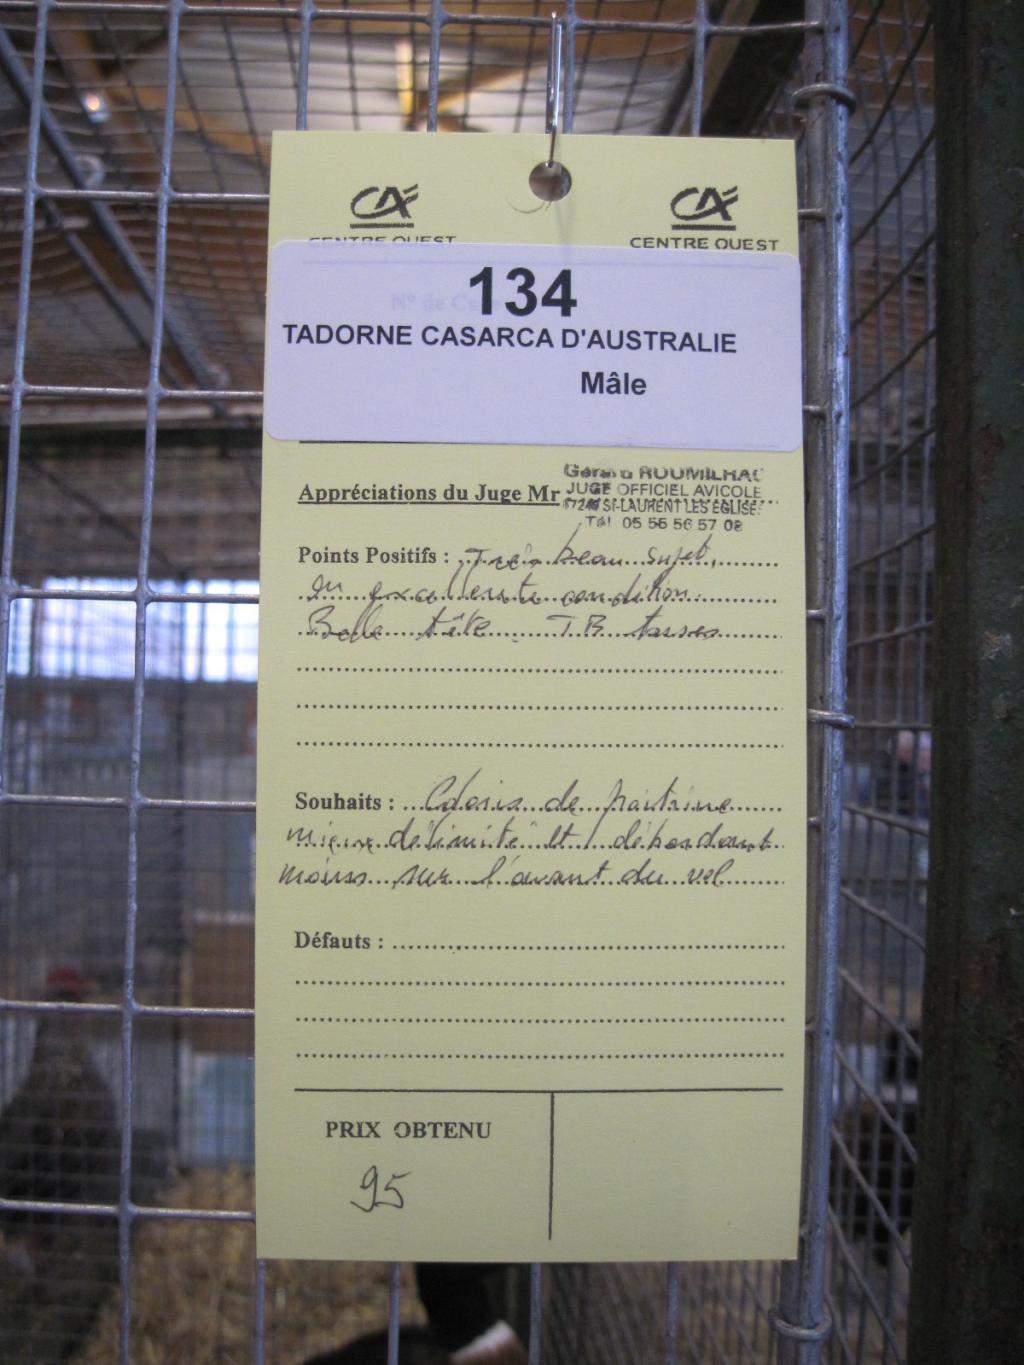 CA CA
CENTRE OUEST CENTRE OUEST
N° de Ca
134
TADORNE CASARCA D'AUSTRALIE
Mâle
Gérard ROUMILHAC
Appréciations du Juge Mr JUGE OFFICIEL AVICOLE
87240 St-LAURENT LES EGLISES
Tél 05 55 56 57 08
Points Positifs : Très beau sujet,
en excellente condition.
Belle tête. TB tarses
Souhaits : Coloris de poitrine
mieux délimité et débordant
moins sur l'avant du vol
Défauts :
PRIX OBTENU
95